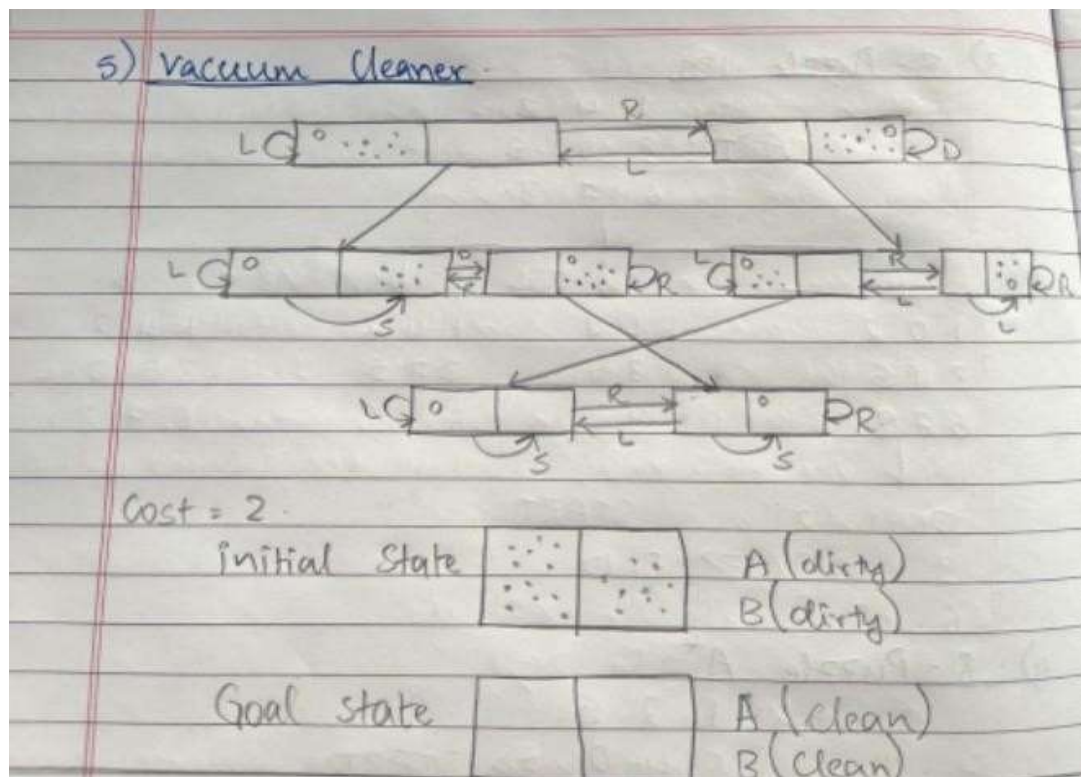 5) Vacuum Cleaner
R
L
L
D
L
R
L
R
R
L
R
S
L
L
R
R
L
S
S
Cost = 2.
initial State
A (dirty)
B (dirty)
Goal state
A (clean)
B (Clean)